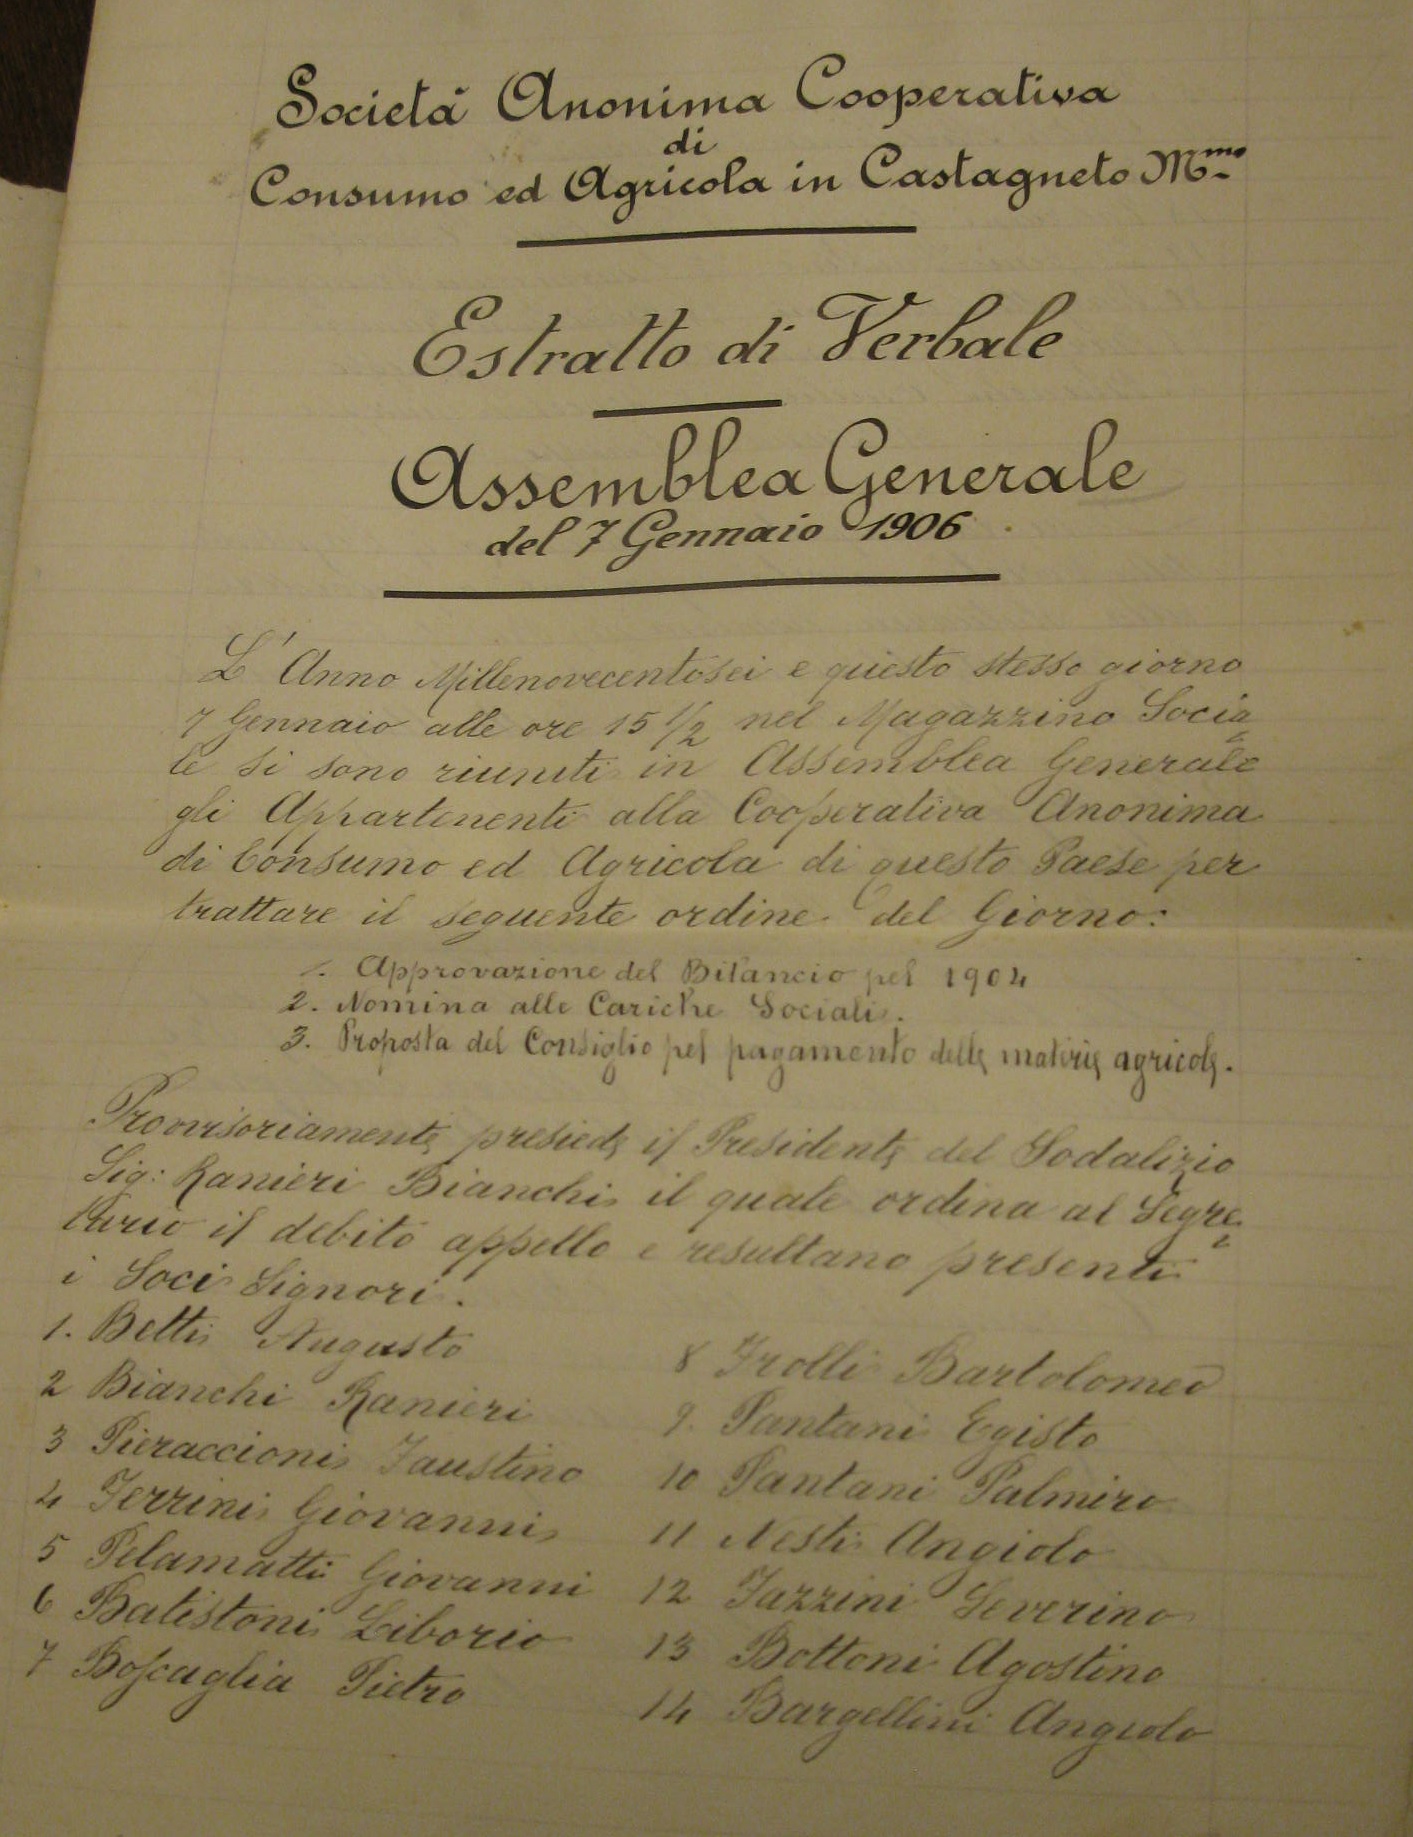 Società Anonima Cooperativa
di
Consumo ed Agricola in Castagneto Mmo
Estratto di Verbale
Assemblea Generale
del 7 Gennaio 1906
L' Anno Millenovecentosei e questo stesso giorno
7 Gennaio alle ore 15 1/2 nel Magazzino Socia=
le si sono riuniti in Assemblea Generale
gli Appartenenti alla Cooperativa Anonima
di Consumo ed Agricola di questo Paese per
trattare il seguente ordine del Giorno:
1. Approvazione del Bilancio pel 1904
2. Nomina alle Cariche Sociali.
3. Proposta del Consiglio pel pagamento delle materie agricole.
Provvisoriamente presiede il Presidente del Sodalizio
Sig: Ranieri Bianchi il quale ordina al Segre=
tario il debito appello e resultano presenti
i Soci Signori.
1. Betti Augusto
2 Bianchi Ranieri
3 Pieraccioni Faustino
4 Ferrini Giovanni
5 Pelamatti Giovanni
6 Batistoni Liborio
7 Boscaglia Pietro
8 Frolli Bartolomeo
9. Pantani Egisto
10 Pantani Palmiro
11 Nesti Angiolo
12 Fazzini Severino
13 Bottoni Agostino
14 Bargellini Angiolo